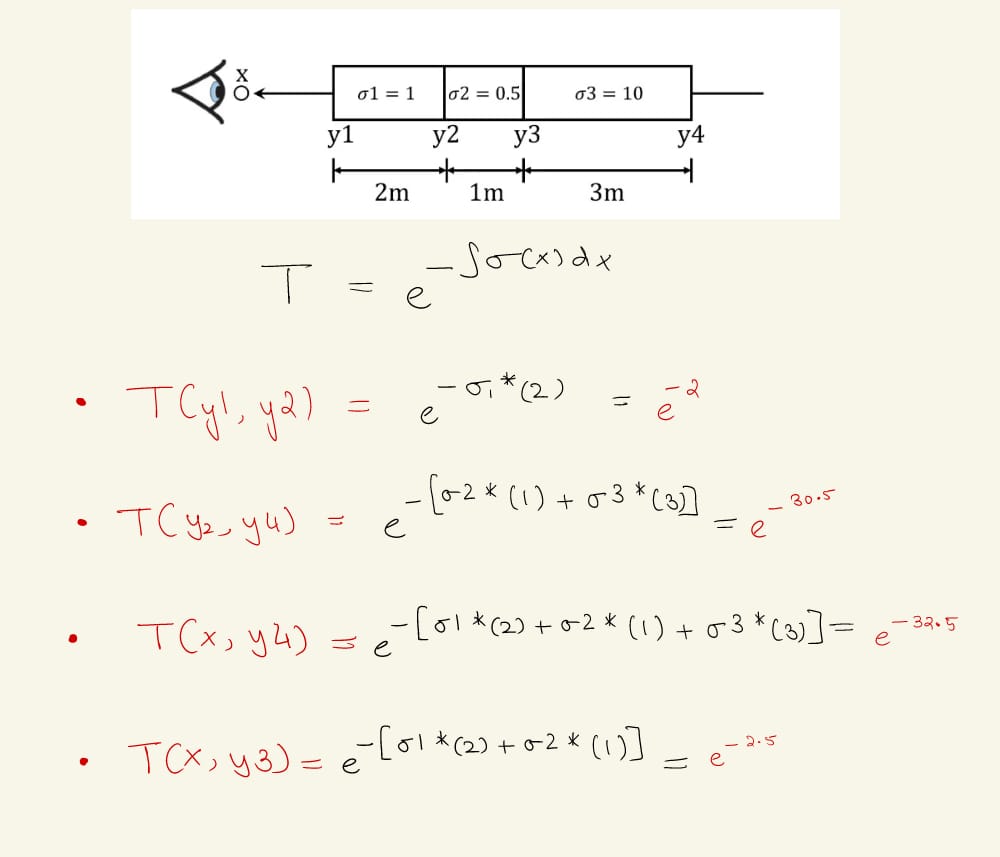 x
σ1 = 1 σ2 = 0.5 σ3 = 10
y1 y2 y3 y4
2m 1m 3m
T = e^-∫σ(x)dx
• T(y1, y2) = e^-σ1*(2) = e^-2
• T(y2, y4) = e^-[σ2*(1) + σ3*(3)] = e^-30.5
• T(x, y4) = e^-[σ1*(2) + σ2*(1) + σ3*(3)] = e^-32.5
• T(x, y3) = e^-[σ1*(2) + σ2*(1)] = e^-2.5